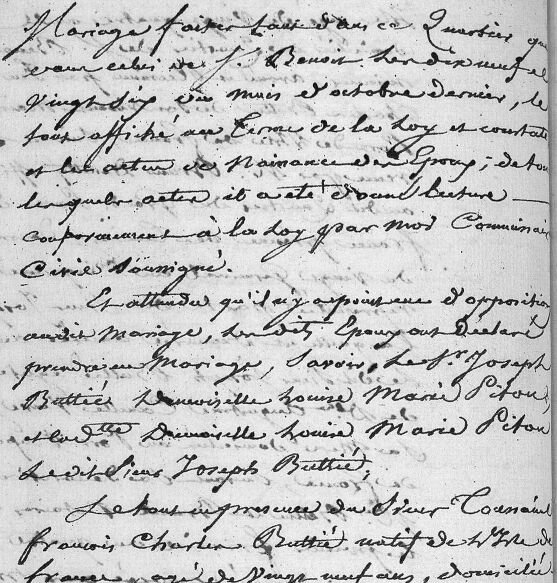 Mariage faites tant dans ce Quartier que
dans celui de St. Benoit les dix neuf et
vingt six du mois d'octobre dernier, le
tout affiché au terme de la Loy et constaté
et les actes de Naissance des Epoux; de tous
lesquels actes il a été donné lecture
conformément à la Loy par moi Commissaire
Civil Soussigné.
Et attendu qu'il n'y a point eue d'opposition
audit Mariage, les dits Epoux ont Declaré
prendre en Mariage, Savoir, le Sr. Joseph
Buttié Demoiselle Louise Marie Pitou,
et lad.tte Demoiselle Louise Marie Pitou
le dit Sieur Joseph Buttié;
Le tout en presence du Sieur Toussaint
françois Charles Buttié natif de
france agé de Vingt neuf ans domicilié